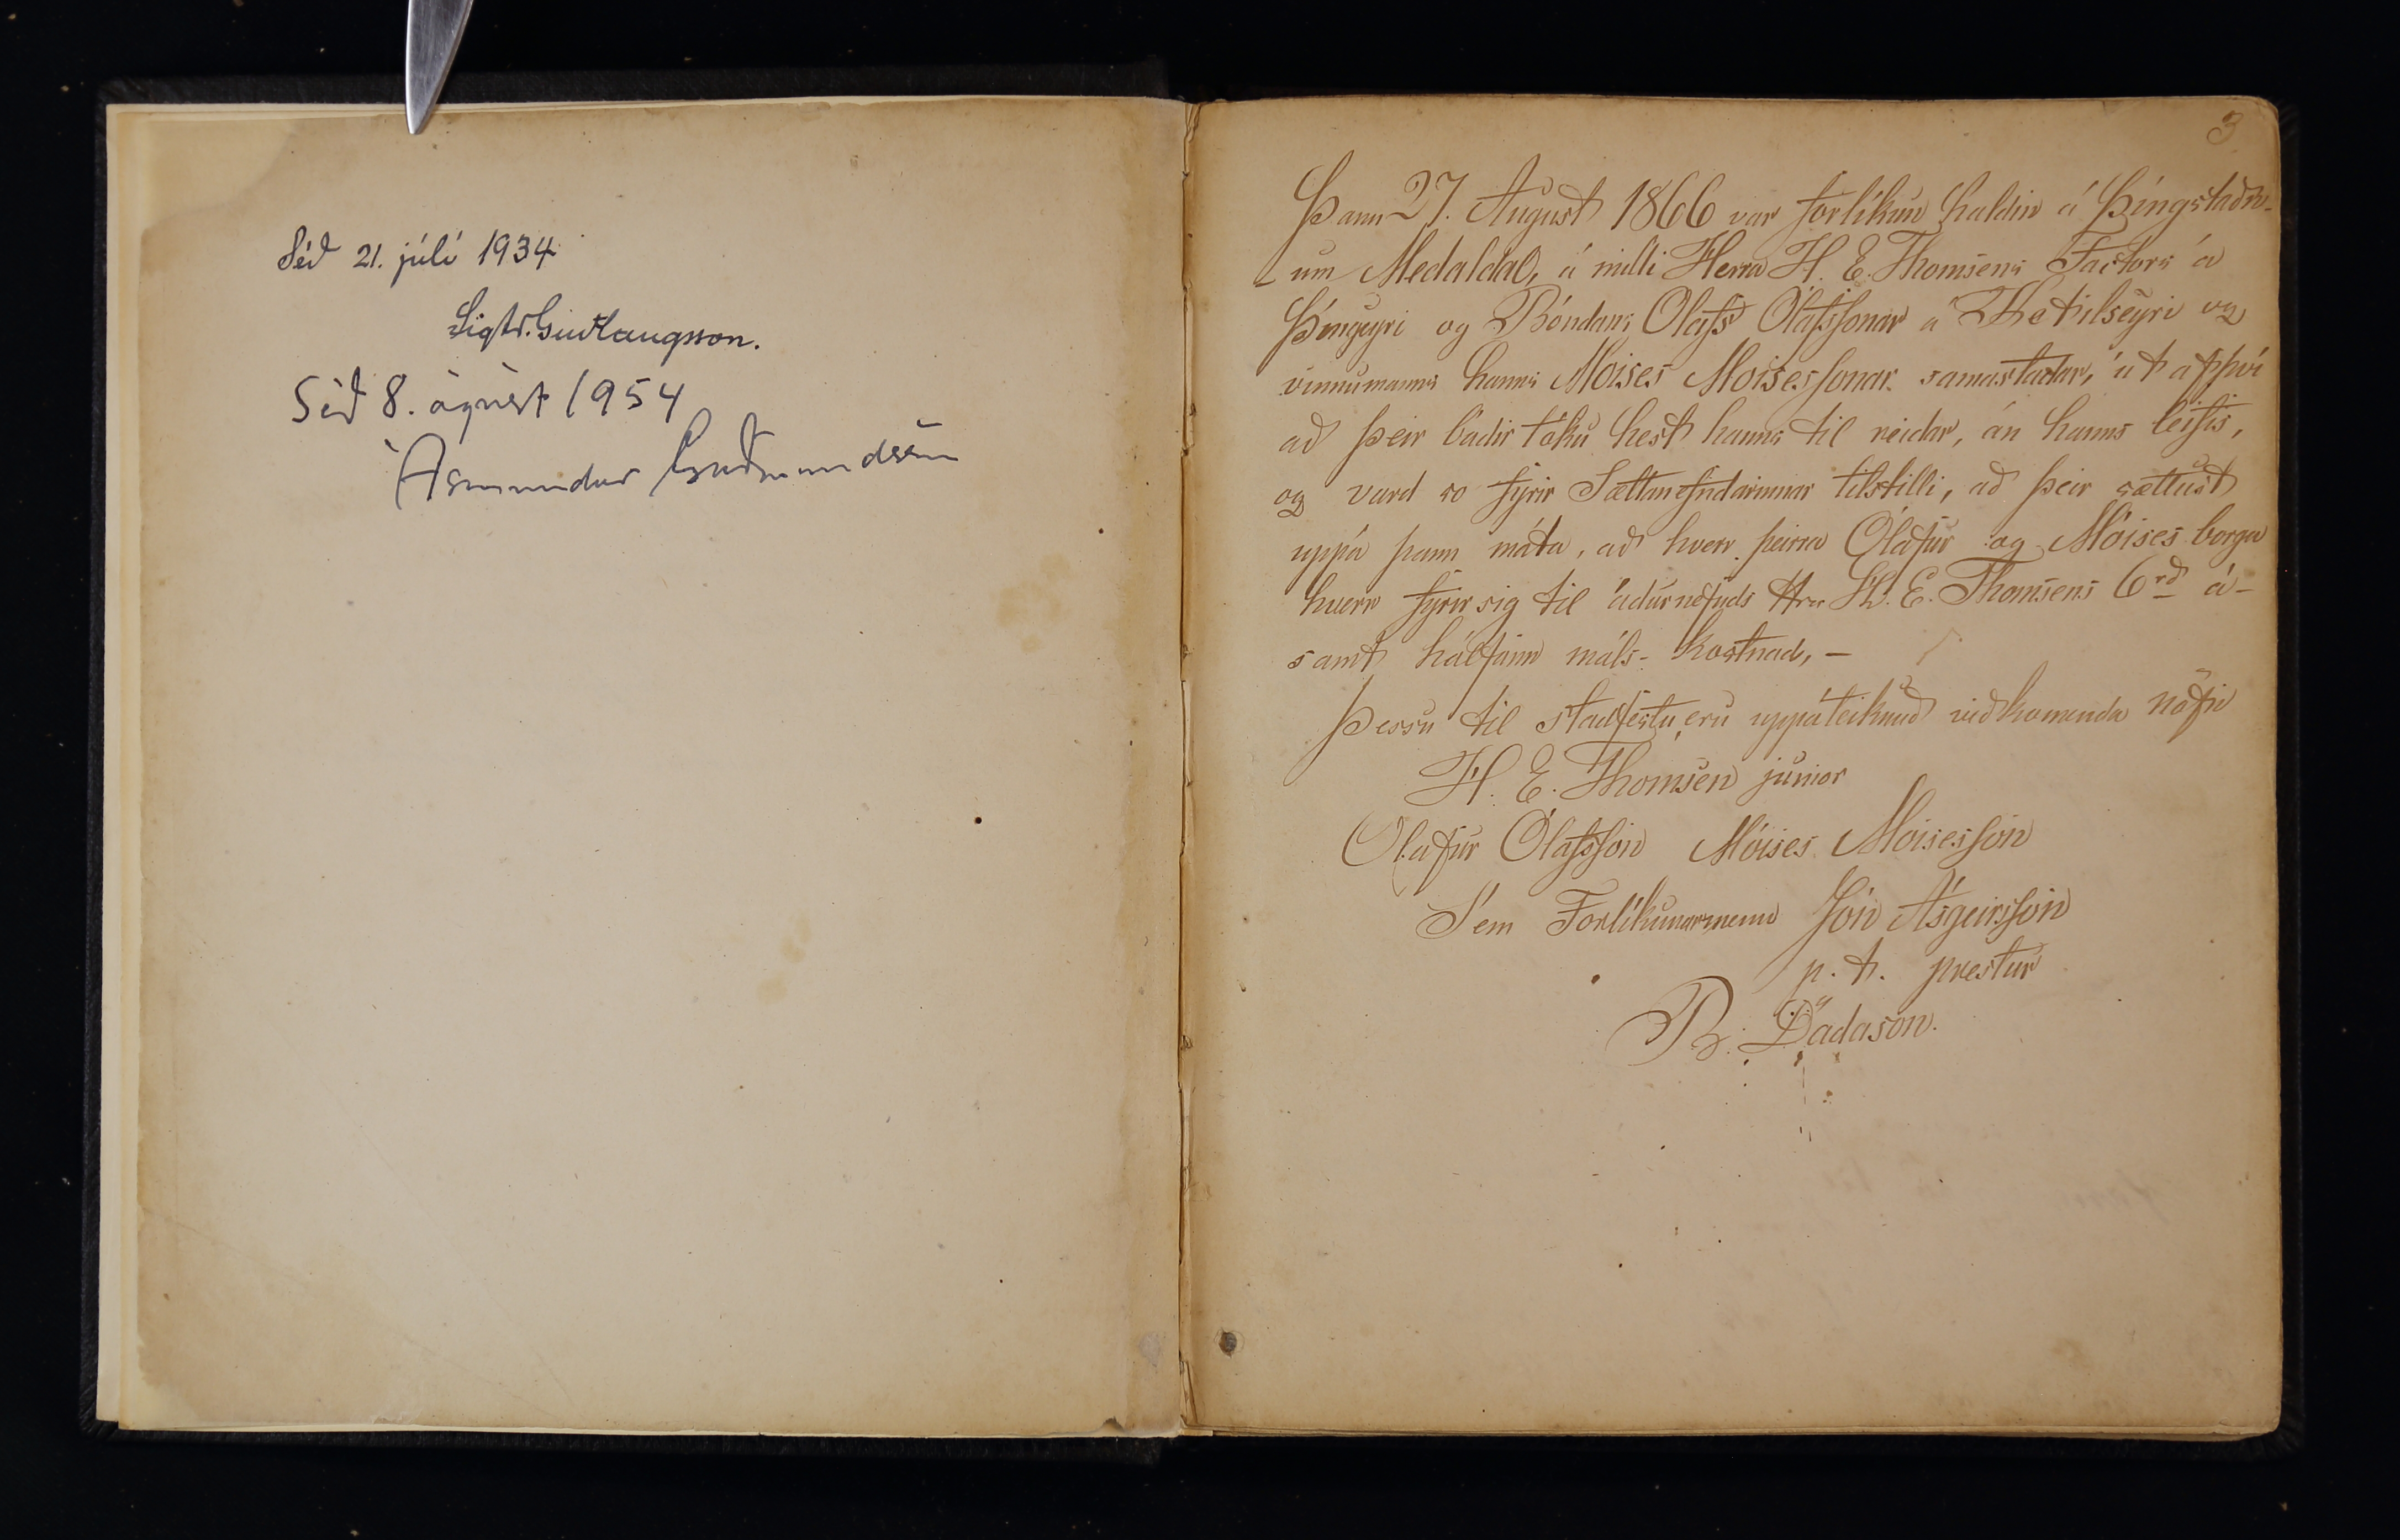 Séð 21. júlí 1934
Sigtr. Guðlaugsson.
Séð 8. ágúst 1954
Ásmundur Guðmundsson
3
Þann 27. August 1866 var forlíkun haldin á Þíngstadn-
um Medaldal, á milli Herra H. E. Thomsens Factors á
Þíngeyri og Bóndans Olafs Ólafssonar á Ketilseyri og
vinnumanns hanns Moises Moisessonar samastadar, út af því
að þeir bádir tóku hest hanns til reidar, án hanns leifis,
og vard so fyrir Sættanefndarinnar tilstilli, að þeir sættust
uppá þann máta, að hver þeirra Ólafur og Móises borga
hverr fyrir sig til ádurnefnds Hra H. E. Thomsens 6 rd á-
samt hálfann máls-kostnad, –
Þessu til stadfestu eru uppáteiknud viðkomenda nöfn
H. E. Thomsen junior
Olafur Ólafsson Móises Moisesson
Sem Forlíkunarmenn Jón Ásgeirsson
p. t. prestur
B. Dadason.